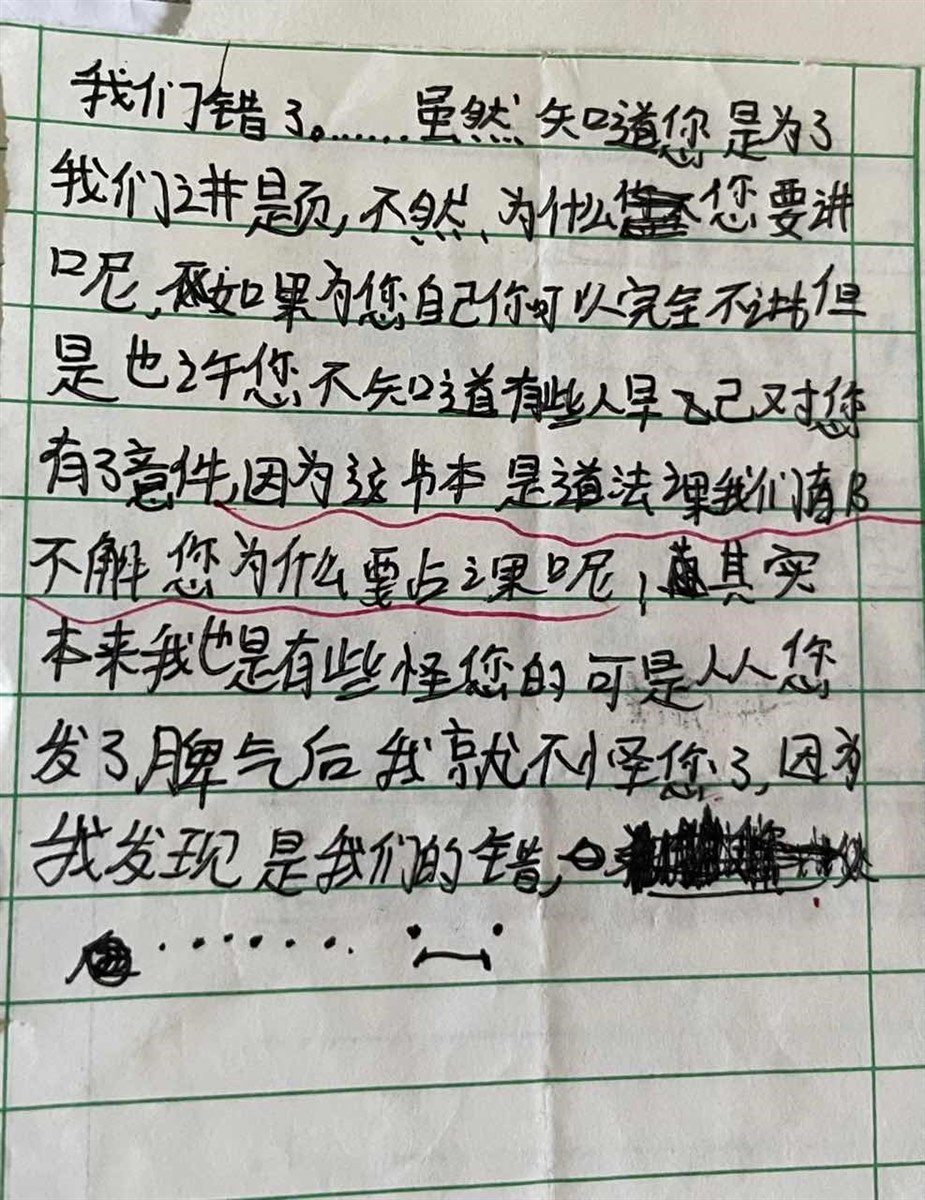 我们错了。……虽然知道您是为了
我们讲是页,不然,为什么您要讲
呢,如果为您自己你可以完全不讲但
是也许您不知道有些人早已对您
有了意件,因为这节本是道法课我们有
不解您为什么要占课呢,其实
本来我也是有些怪您的可是从您
发了脾气后我就不怪您了,因为
我发现是我们的错,
……